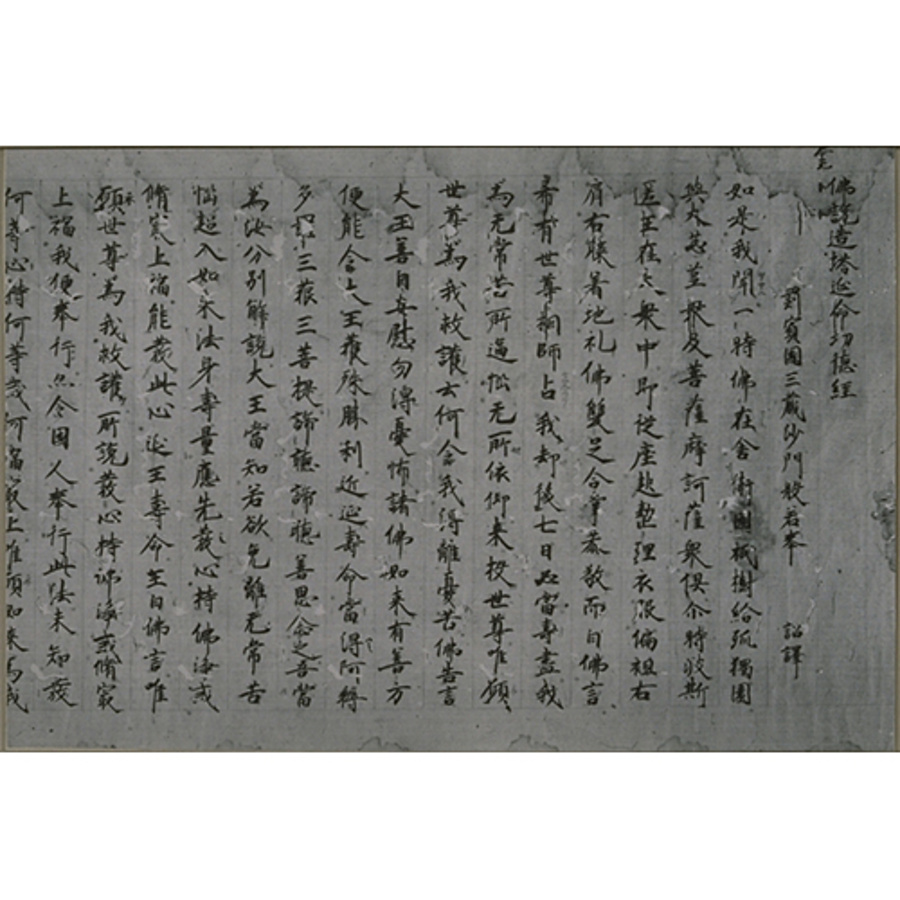 佛說造塔延命功德經
罽賓國三藏沙門般若奉 詔譯
如是我聞一時佛在舍衛國祇樹給孤獨園
與大苾蒭眾及菩薩摩訶薩眾俱尒時波斯
匿王在大眾中即從座起整理衣服偏袒右
肩右膝著地礼佛雙足合掌恭敬而白佛言
希有世尊相師占我却後七日必當壽盡我
為无常苦所逼惱无所依仰来投世尊唯願
世尊為我救護云何令我得離憂苦佛告言
大王善自安慰勿得憂怖諸佛如来有善方
便能令大王獲殊勝利近延壽命當得阿耨
多羅三藐三菩提諦聽諦聽善思念之吾當
為汝分別解說大王當知若欲免離无常苦
惱超入如来法身壽量應先發心持佛淨戒
脩冣上福能發此心延王壽命王白佛言唯
願世尊為我救護所說發心持佛淨戒脩冣
上福我便奉行亦令國人奉行此法未知發
何等心持何等戒何福冣上唯願如来為我